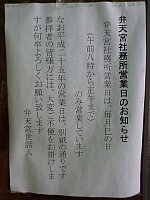 弁天宮社務所営業日のお知らせ
弁天宮社務所営業日は、毎月巳の日
(午前八時から正午まで)
のみ営業しています
なお平成二十五年の営業日は、別紙の通りです
参拝者の皆様方には、大変ご不便をお掛けしま
すが何卒よろしくお願い致します
弁天宮世話人